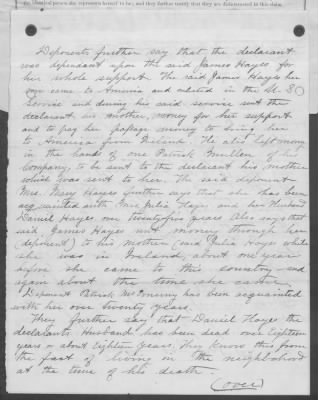 the identical person she represents herself to be; and they further testify that they are disinterested in this claim.
Deponents further say that the declarant
was dependant upon the said James Hayes for
her whole support. The said James Hayes her
son came to America and enlisted in the U.S.
Service and during his said service sent the
declarant his mother, money for her support
and to pay her passage money to bring her
to America from Ireland. He also left money
in the hands of one Patrick of his
Company, to be sent to the declarant his mother
which was sent to her. The said deponent
Mrs. Mary Hayes further says that she has been
acquainted with Mrs Julia Hayes and her Husband
Daniel Hayes over twenty five years. Also says that
said James Hayes sent money through her
(deponent) to his Mother (said Julia Hayes while
she was in Ireland, about one year
before she came to this country and
again about the time she came.
Deponent Patrick has been acquainted
with her over twenty years.
They further say that Daniel Hayes the
declarants Husband has been dead over Eighteen
years or about Eighteen years. They know this from
the fact of living in the neighborhood
at the time of his death.
(over)